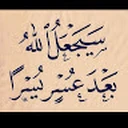 سَيَجْعَلُ اللهُ
بَعْدَ عُسْرٍ يُسْرًا